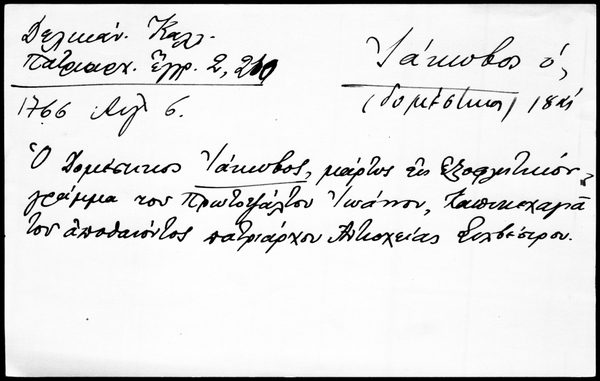 Δελικάν. Καλλ.
Πατριαρχ. Ἔγγρ. 2, 210
Ἰάκωβος ὁ,
1766 Αὐγ 6.
(δομέστικος) 18
Ὁ Δομέστικος Ἰάκωβος, μάρτυς εἰς ἐξοφλητικόν
γράμμα του Πρωτοψάλτου Ἰωάννου, καπικεχαγιᾶ
του ἀποθανόντος πατριάρχου Ἀντιοχείας Σιλβέστρου.